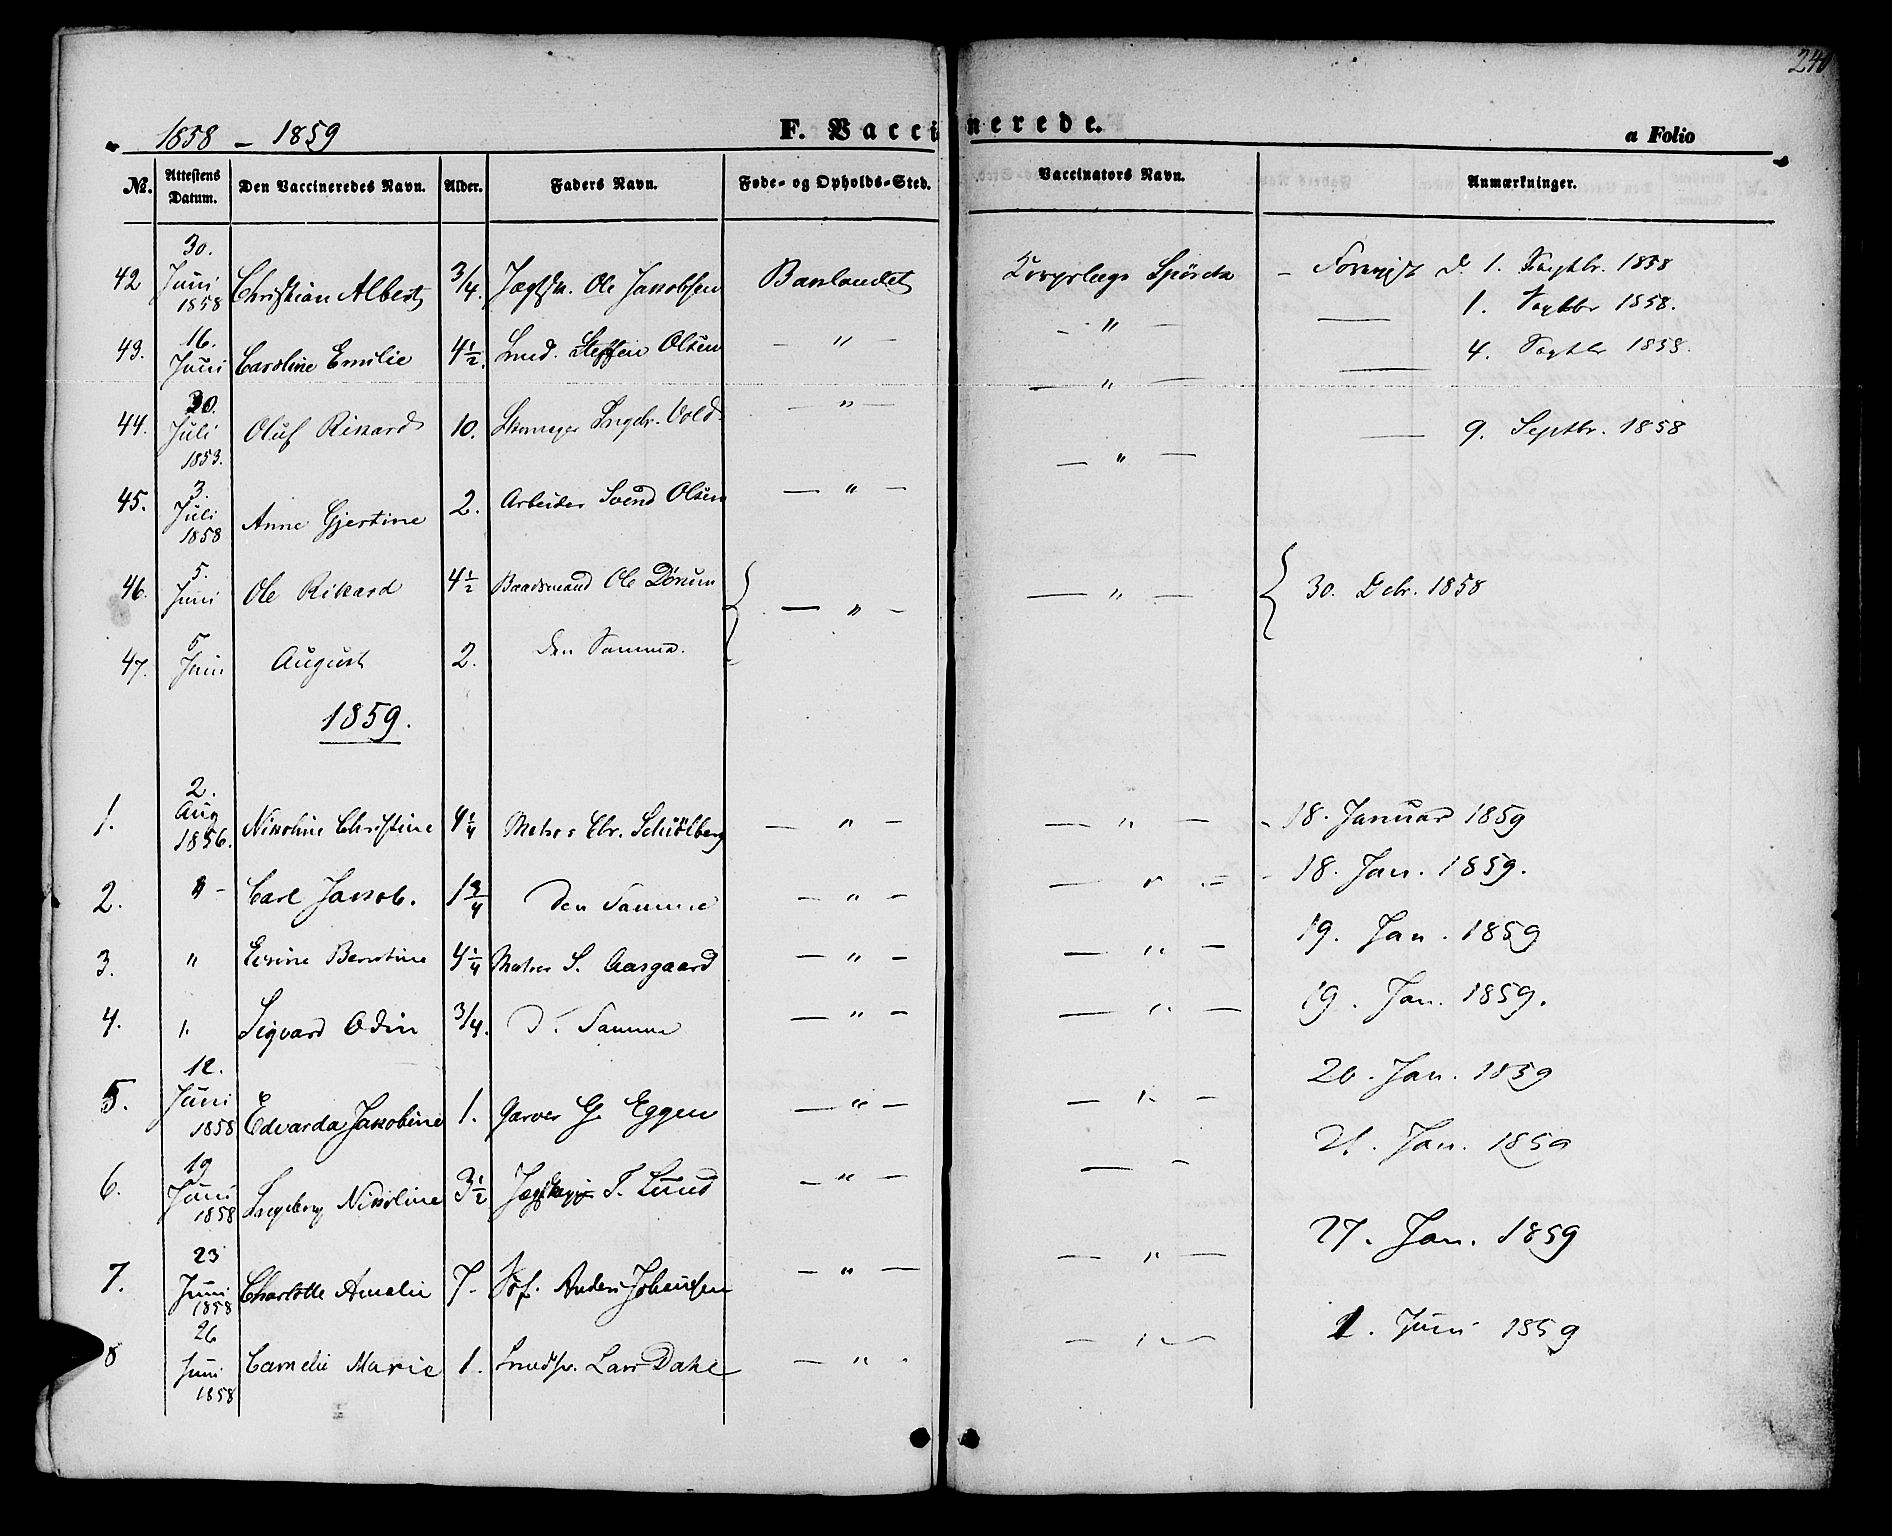 240
1858 - 1859 F. Vaccinerede. a Folio
No. Attestens Datum. Den Vaccineredes Navn. Alder. Faders Navn. Føde- og Opholds-Sted. Vaccinators Navn. Anmærkninger.
42 30. Juni 1858 Christian Albert 3/4. Ole Jakobsen Baklandet Korpslæge 1. Septbr. 1858
43. 16. Juni Caroline Emilie 4 1/2. Steffen Olsen — " — — " — — 1. Septbr 1858.
— 4. Septbr 1858.
44. 30. Juli 1853. Oluf Rikard 10. Ingebr. Vold — " — — " —
— 9. Septbr. 1858
45. 3. Juli 1858 Anne Gjertine 2. Arbeider Svend Olsen — " — — " —
46. 5. Juni Ole Rikard 4 1/2 Baadsmand Ole Dørum — " — — " — 30. Debr. 1858
47. 5. Juni August 2. den Samme.
1859.
1. 2. Aug 1856. Nikoline Christine 4 1/4 Matros Chr. Schiølberg — " — — " — 18. Januar 1859
2. " - Carl Jakob. 1 3/4 Den Samme — " — — " — 18. Jan. 1859.
3. " Berntine 4 1/4 Matros S. Aasgaard — " — — " — 19. Jan. 1859
4. " Sigvard Odin 3/4. D. Samme — " — — " — 19. Jan. 1859.
5. 12. Juni 1858 Edvarda Jakobine 1. Garver G. Eggen — " — — " — 20. Jan. 1859
6. 19 Juni 1858 Ingeborg Nikoline 3 1/2 T. Lund — " — — — 21. Jan. 1859
7. 23 Juni 1858 Charlotte Amalie 7. Søf. Anders Johansen — " — — " — 27. Jan. 1859
8 26 Juni 1858 Marie 1. Lars Dahl — " - — " — 1. Juni 1859